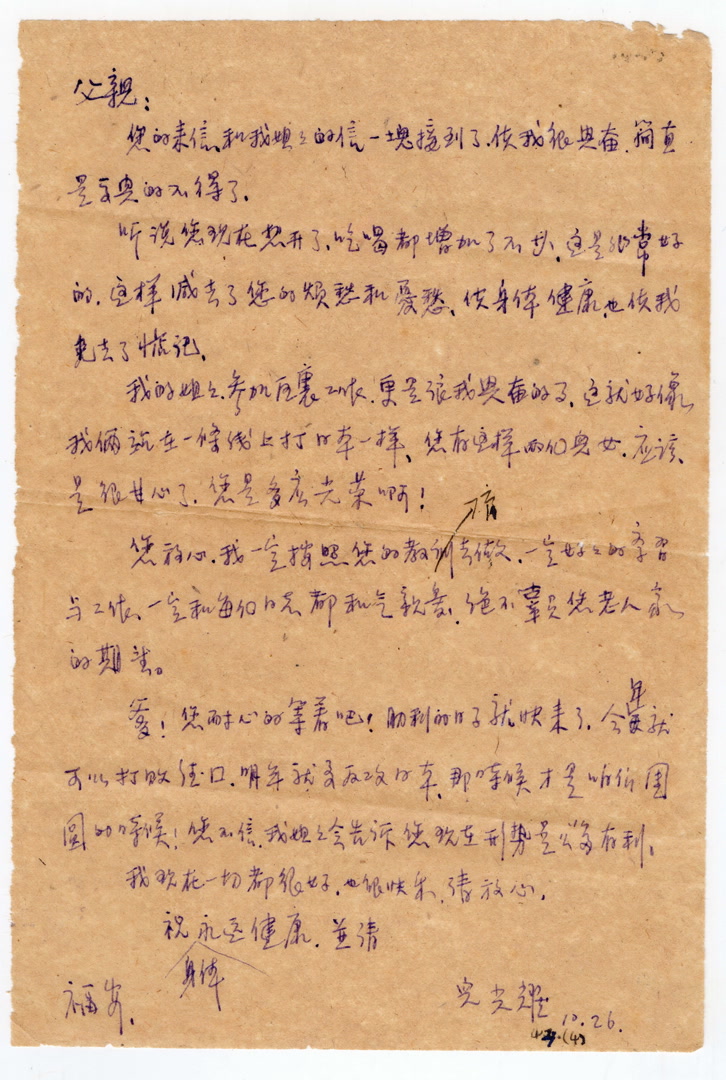 父親：
您的来信和我姐々的信一塊接到了，使我很興奋，簡直
是高興的不得了。
听说您现在想开了，吃喝都增加了不少，这是非常好
的，这样减去了您的烦愁和憂愁，使身体健康，也使我
免去了惦记。
我的姐々参加这裏工作，更是讓我興奋的了，这就好像
我俩站在一條线上打日本一样，您有这样两个兒女，应该
是很甘心了，您是多広光荣啊！
您放心，我一定按照您的教训去做，一定好々的学習
与工作，一定和每個同志都和气親爱，绝不辜負您老人家
的期望。
爹！您耐心的等着吧！勝利的日子就快来了，今年就
可以打敗德日，明年就要反攻日本，那時候才是咱们团
圆的時候！您不信，我姐々会告诉您现在形势是多広有利。
我现在一切都很好，也很快乐，请放心。
祝永远健康，並请
身体
福安。
兒光耀
10.26.